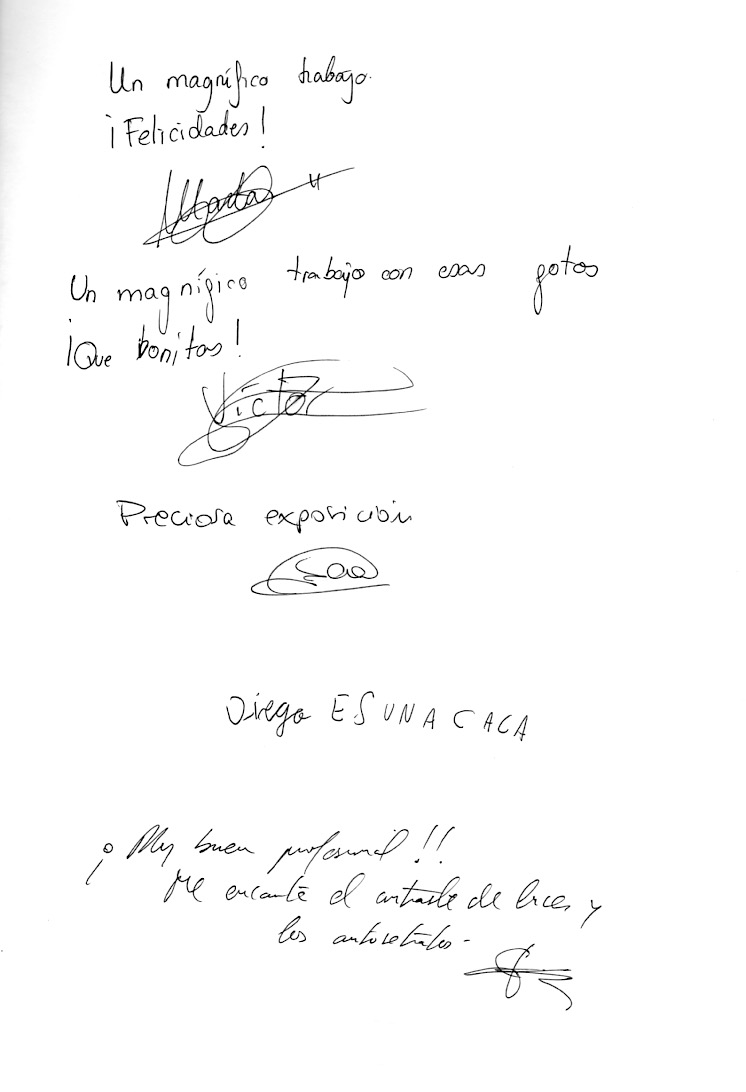 Un magnífico trabajo.
¡Felicidades!
Marta
Un magnígico trabajo con esas gotas
¡Que bonitas!
Víctor
Preciosa exposición
Diego ES UNA CACA
¡Muy buen profesional!!
Me encanta el contraste de luces y
los autoretratos-